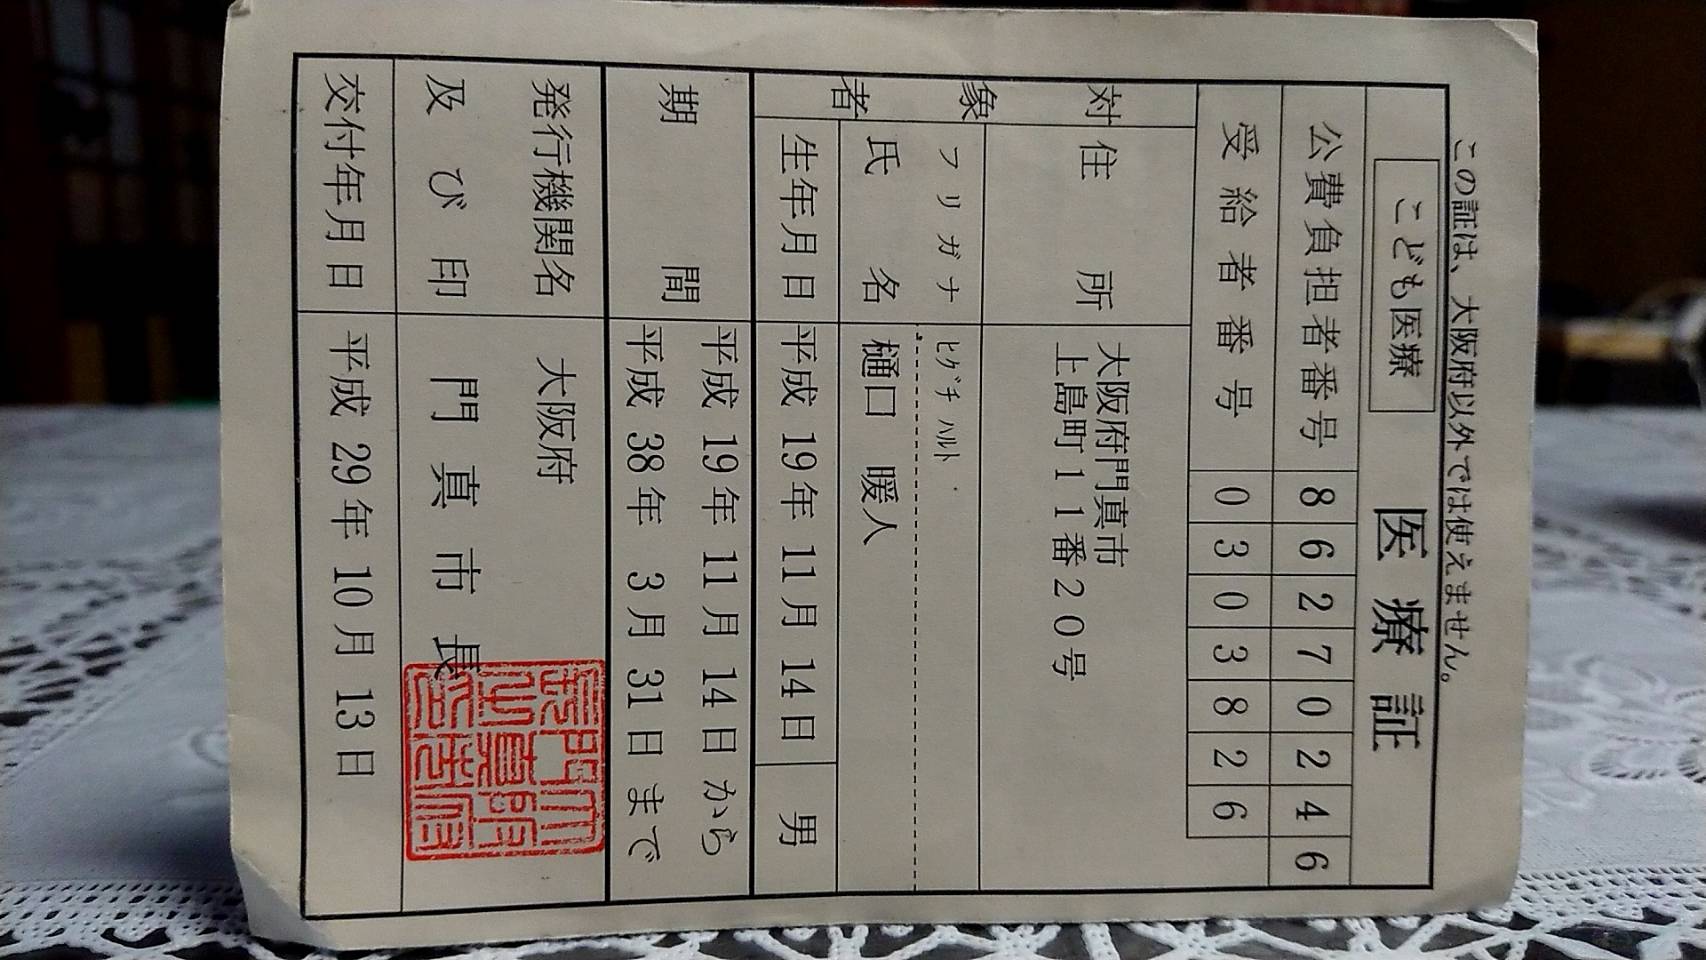 この証は、大阪府以外では使えません。
こども医療 医療証
公費負担者番号 8 6 2 7 0 2 4 6
受給者番号 0 3 0 3 8 2 6
対象者
住所 大阪府門真市
上島町11番20号
フリガナ ﾋｸﾞﾁ ﾊﾙﾄ
氏名 樋口 暖人
生年月日 平成 19年 11月 14日 男
期間 平成 19年 11月 14日 から
平成 38年 3月 31日 まで
発行機関名 大阪府
及び印 門真市長
交付年月日 平成 29年 10月 13日